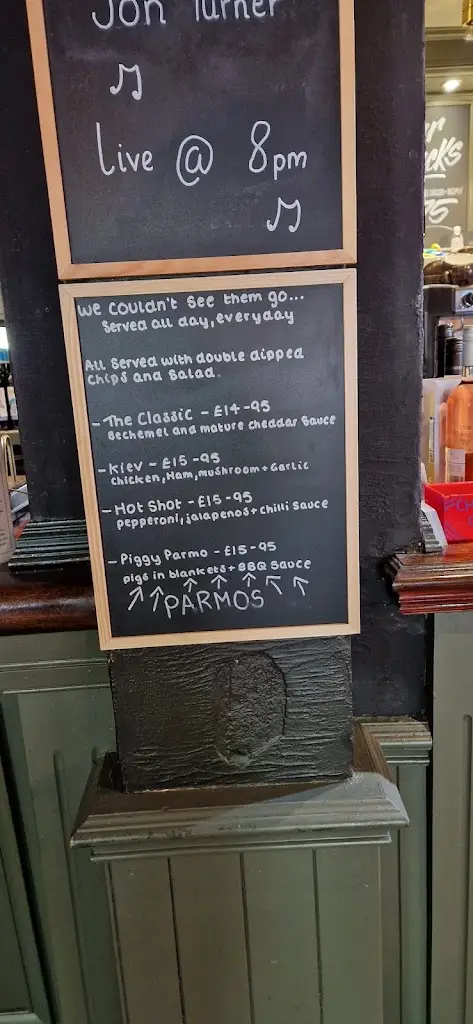 Jon Turner
Live @ 8pm
We couldn't see them go...
Served all day, everyday
All Served with double dipped
chips and Salad.
- The Classic - £14-95
Bechemel and mature cheddar Sauce
- Kiev - £15-95
Chicken, Ham, mushroom + Garlic
- Hot Shot - £15-95
pepperoni, jalapenos + chilli Sauce
- Piggy Parmo - £15-95
pigs in blankets + BBQ Sauce
PARMOS